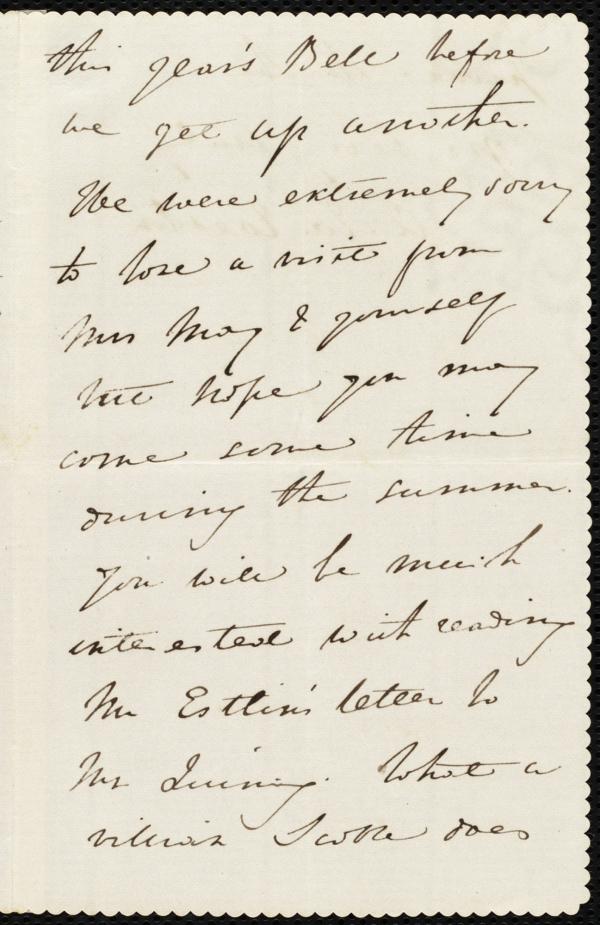 this year's Bell before
we get up another.
We were extremely sorry
to lose a visit from
Mrs May & yourself
but hope you may
come some time
during the summer.
You will be much
interested with reading
Mr Estlin's letter to
Mr Quincy. What a
villian Scoble does